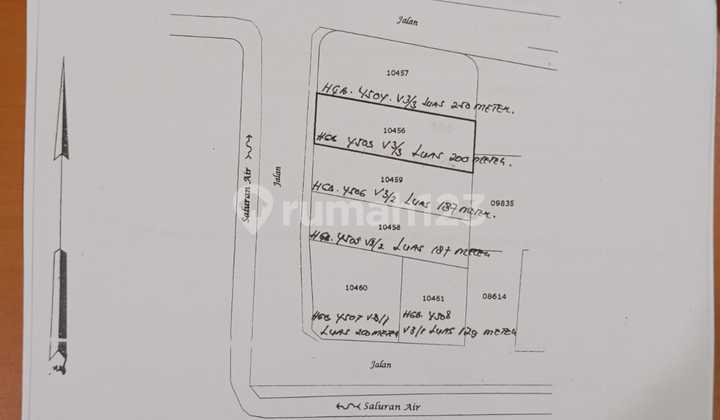 Jalan
10457
HGB. 4504. V3/3 LUAS 250 METER.
10456
HGB 4503 V3/3 LUAS 200 METER.
10459
HGB. 4506 V3/2 LUAS 187 METER.
09835
Saluran Air
Jalan
rumah123
10458
HGB. 4505 V3/2 LUAS 187 METER
10460
10461
08614
HGB 4507 V3/1
LUAS 200 METER
HGB. 4508
V3/1 LUAS 129 METER
Jalan
Saluran Air